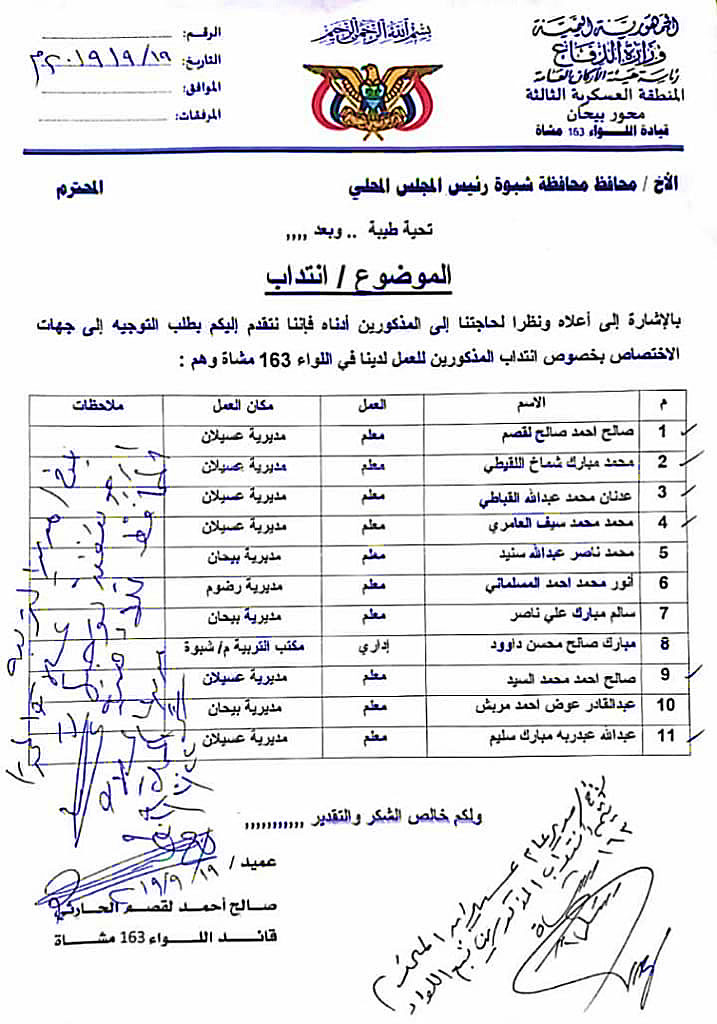 الجمهورية اليمنية
وزارة الدفاع
رئاسة هيئة الأركان العامة
المنطقة العسكرية الثالثة
محور بيحان
قيادة اللواء 163 مشاة
بسم الله الرحمن الرحيم
الرقم:
التاريخ: ١٩/٩/٢٠١٩م
الموافق:
المرفقات:
الأخ / محافظ محافظة شبوة رئيس المجلس المحلي المحترم
تحية طيبة .. وبعد ,,,,
الموضوع / انتداب
بالإشارة إلى أعلاه ونظرا لحاجتنا إلى المذكورين أدناه فإننا نتقدم إليكم بطلب التوجيه إلى جهات
الاختصاص بخصوص انتداب المذكورين للعمل لدينا في اللواء 163 مشاة وهم :
م الاسم العمل مكان العمل ملاحظات
1 صالح احمد صالح لقصم معلم مديرية عسيلان
2 محمد مبارك شماخ اللقيطي معلم مديرية عسيلان
3 عدنان محمد عبدالله القباطي معلم مديرية عسيلان
4 محمد محمد سيف العامري معلم مديرية عسيلان
5 محمد ناصر عبدالله سنيد معلم مديرية بيحان
6 أنور محمد احمد المسلماني معلم مديرية رضوم
7 سالم مبارك علي ناصر معلم مديرية بيحان
8 مبارك صالح محسن داوود إداري مكتب التربية م/ شبوة
9 صالح احمد محمد السيد معلم مديرية عسيلان
10 عبدالقادر عوض احمد مريش معلم مديرية بيحان
11 عبدالله عبدربه مبارك سليم معلم مديرية عسيلان
ولكم خالص الشكر والتقدير ,,,,,,,,,,,
عميد /
١٩/٩/٢٠١٩
صالح أحمد لقصم الحارثي
قائد اللواء 163 مشاة
مدير عام عسيلان المحترم
انتداب المذكورين تبع اللواء
١٦٣ مشاة